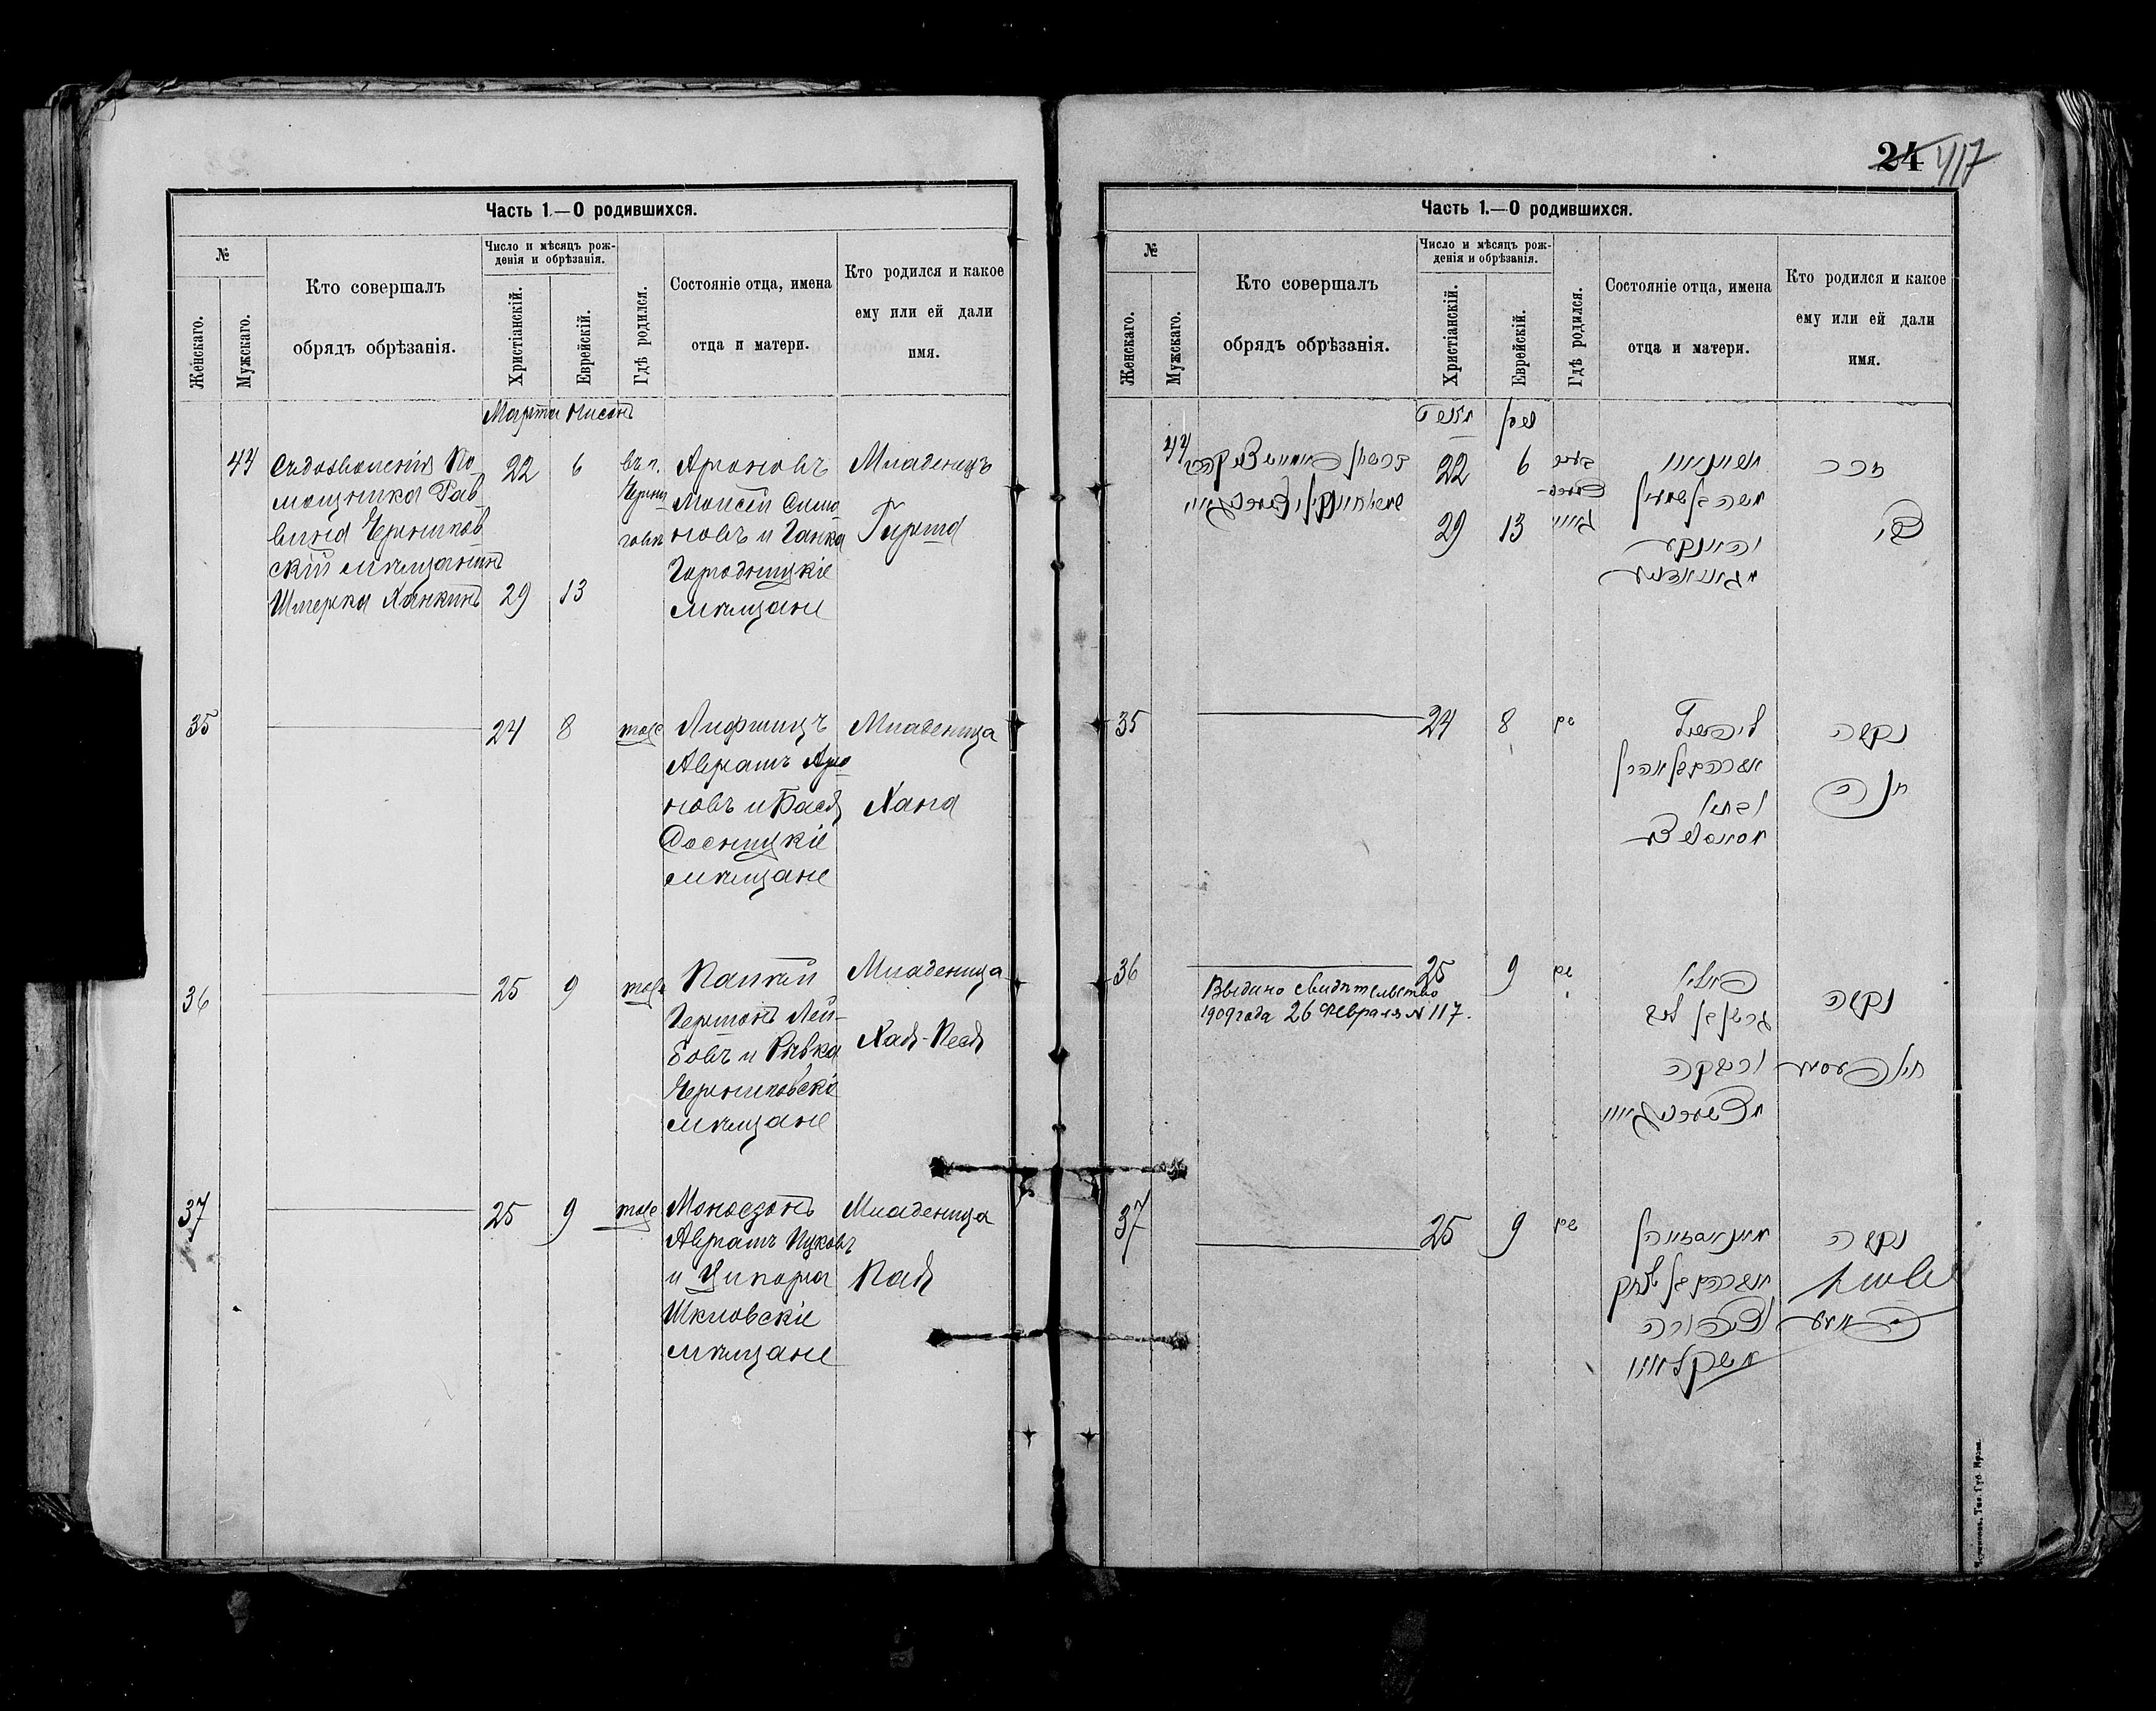 Часть 1.—О родившихся.
№
Женскаго.
Мужскаго.
Кто совершалъ
обрядъ обрѣзанія.
Число и мѣсяцъ рож-
денія и обрѣзанія.
Христіанскій.
Еврейскій.
Гдѣ родился.
Состояніе отца, имена
отца и матери.
Кто родился и какое
ему или ей дали
имя.
Марта Нисонъ
44
Съ дозволенія По-
мощника Рав-
вина Чернигов-
скій мѣщанинъ
Шмерка Ханкинъ
22
6
29
13
въ г.
Черни-
говѣ
Ароновъ
Моисей Симо-
новъ и Ганка
Городницкіе
мѣщане
Младенецъ
Гирша
35
24
8
тоже
Лифшицъ
Абрамъ Аро-
новъ и Бася
Сосницкіе
мѣщане
Младеница
Хана
36
25
9
тоже
Гершонъ Лей-
бовъ и Ривка
Черниговскіе
мѣщане
Младеница
Хая-Песя
37
25
9
тоже
Моносзонъ
Абрамъ Ицковъ
и Ципора
Шкловскіе
мѣщане
Младеница
Пая
24
417
Часть 1.—О родившихся.
№
Женскаго.
Мужскаго.
Кто совершалъ
обрядъ обрѣзанія.
Число и мѣсяцъ рож-
денія и обрѣзанія.
Христіанскій.
Еврейскій.
Гдѣ родился.
Состояніе отца, имена
отца и матери.
Кто родился и какое
ему или ей дали
имя.
44
22
6
29
13
משה בן שמעון
זכר
צבי
35
24
8
ליפשיץ
אברהם בן אהרן
נקבה
חנה
36
25
9
Выдано свидѣтельство
1909 года 26 Февраля № 117.
גרשון בן ליב
ורבקה
נקבה
37
25
9
אברהם בן יצחק
וצפורה
נקבה
Черниговъ. Тип. Губ. Правл.